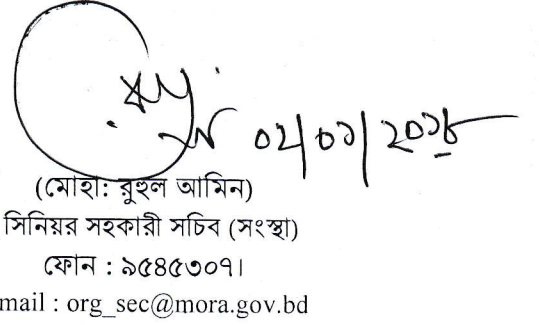 ০২|০১|২০১৮
(মোহা: রুহুল আমিন)
সিনিয়র সহকারী সচিব (সংস্থা)
ফোন : ৯৫৪৫৩০৭।
mail : org_sec@mora.gov.bd